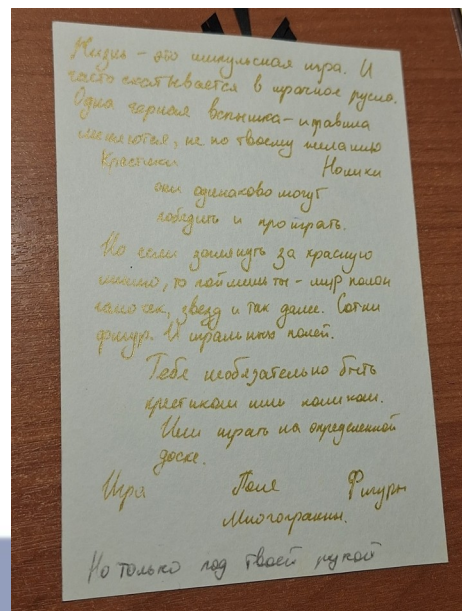 Жизнь - это импульсная игра. И
часто скатывается в мрачное русло.
Одна горная вспышка - и правила
меняются, не по твоему желанию
Крестики Нолики
они одинаково могут
победить и проиграть.
Но если заглянуть за красную
линию, то поймешь ты - мир полон
галочек, звезд и так далее. Сотни
фигур. И игральных полей.
Тебе необязательно быть
крестиком или ноликом.
Или играть на определенной
доске.
Игра Поле Фигуры
Многогранны.
Но только под твоей рукой